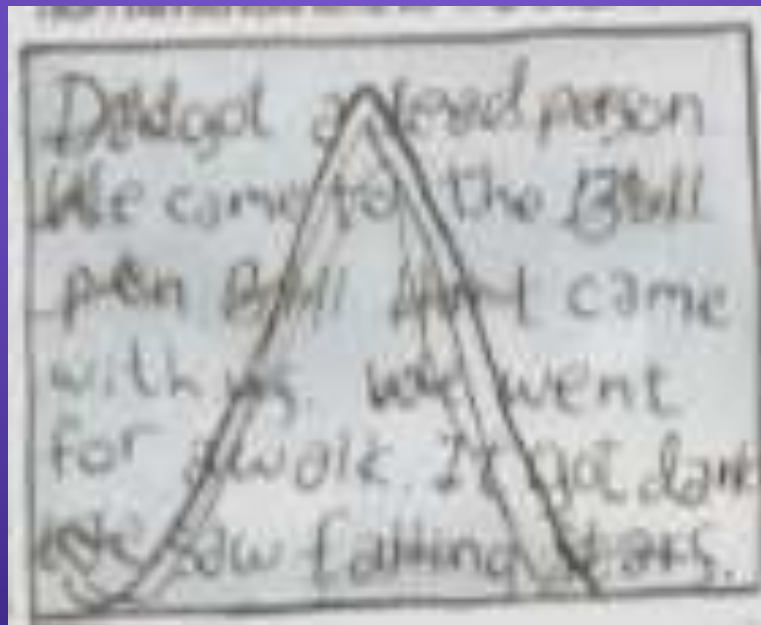 Dad got a person
We came to the Bull
Bull came
with us. We went
for a walk. It got dark
We saw falling stars.